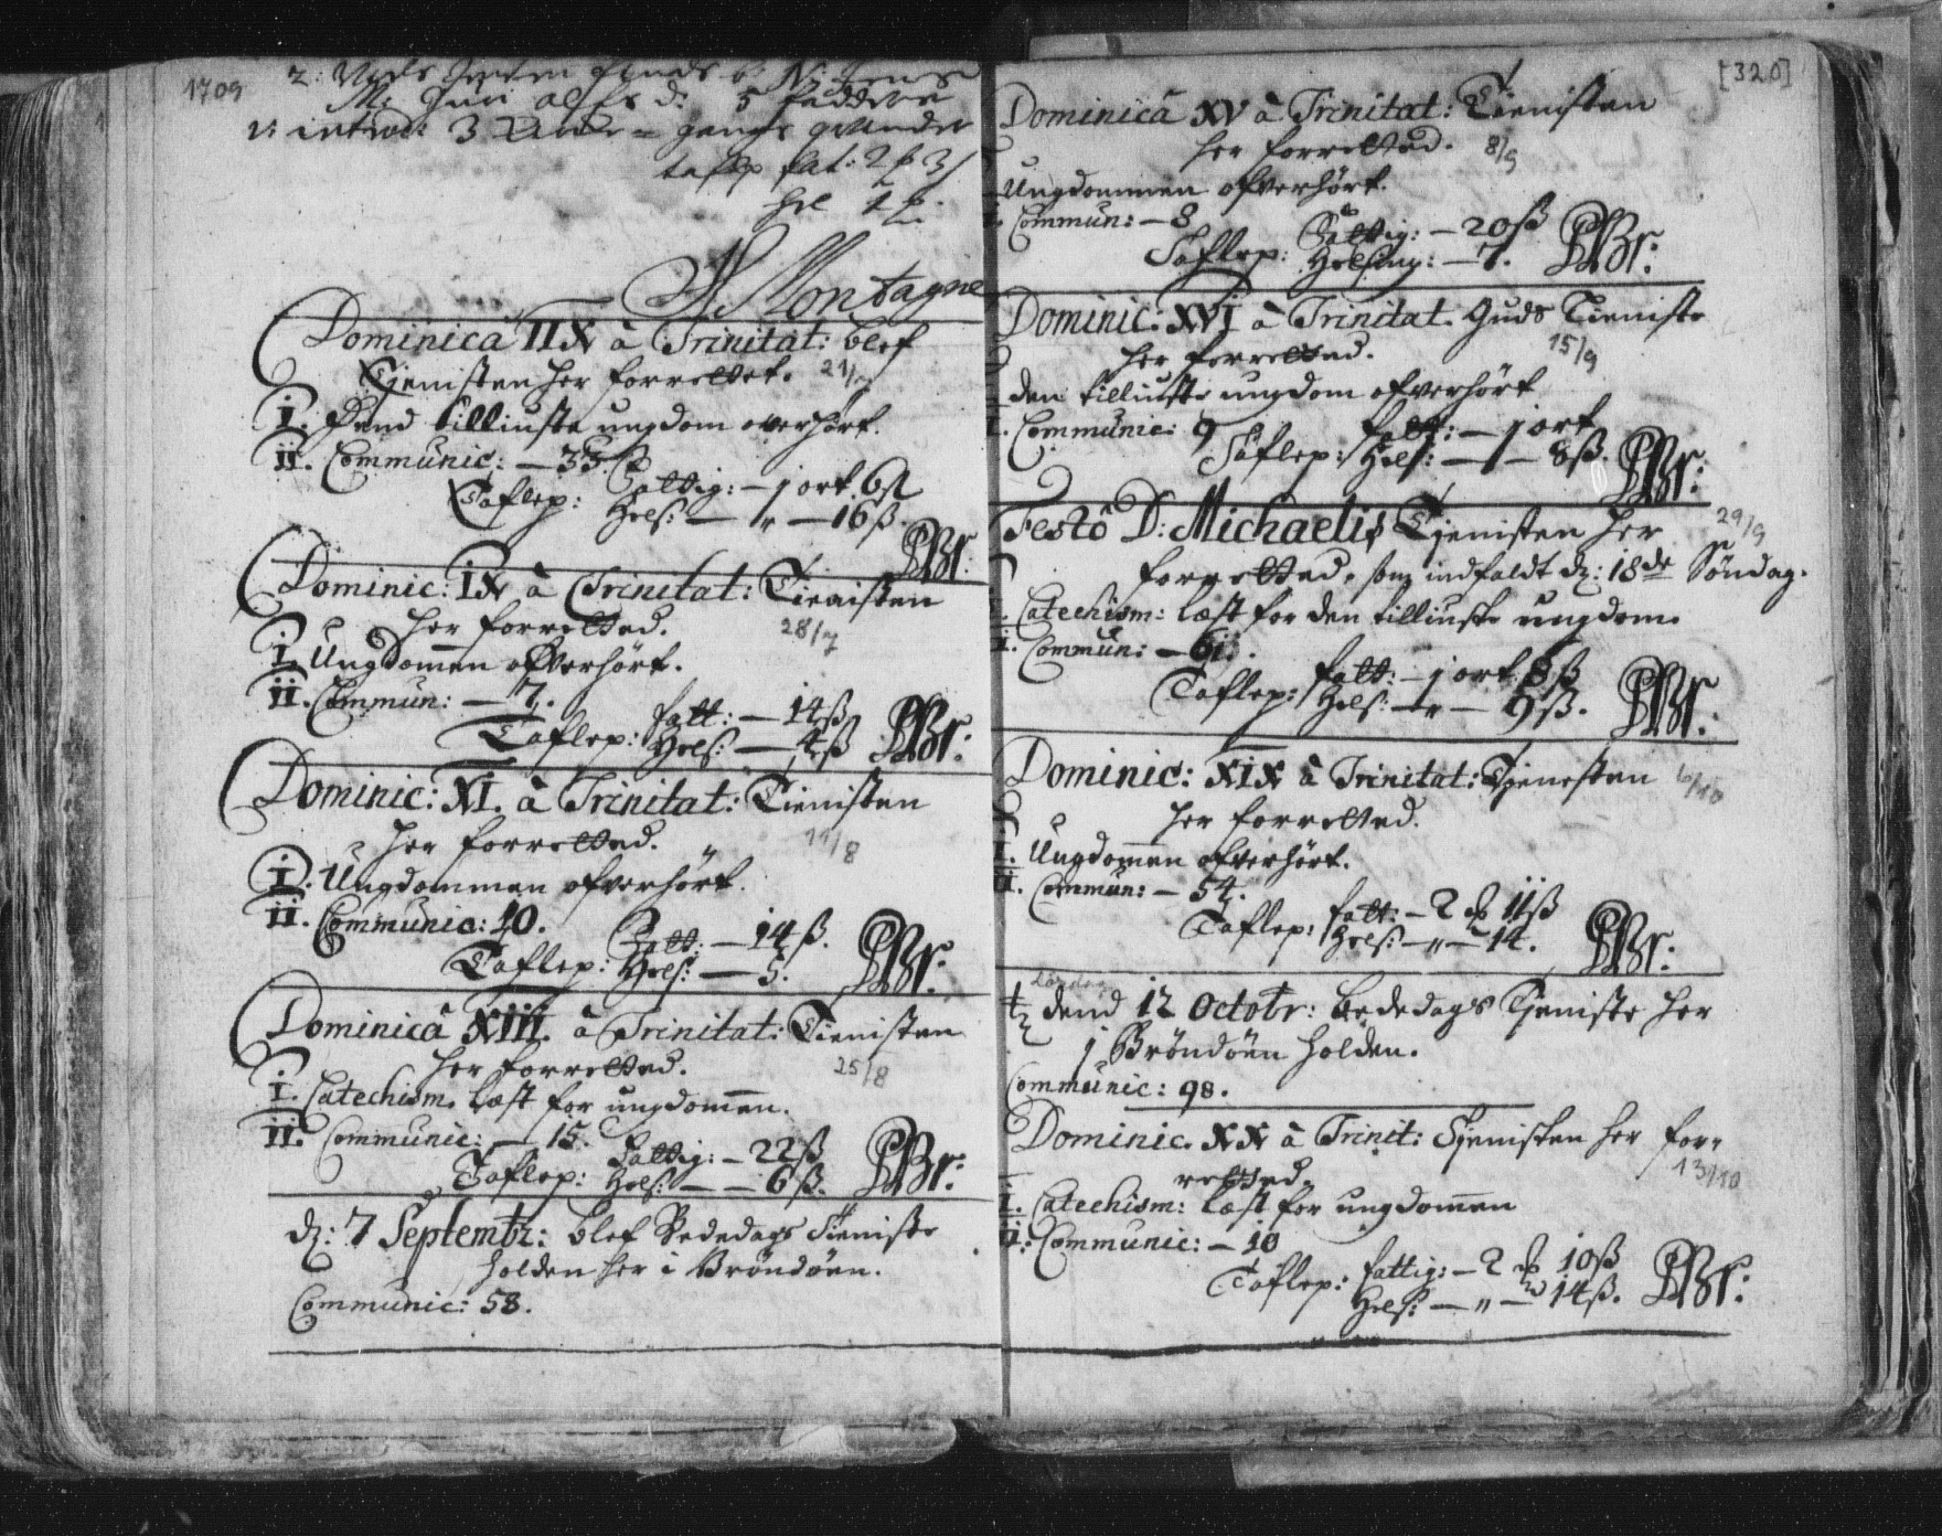 1709
2: Niels
M: 5 faddere
1: introd: 3 gangs qvinder
taflp fat: 2 ß 3
Hol 1
Montagne
Dominica IIX à Trinitat: blef
Tjenisten her forrettet. 21/7
I. Dend tilliuste ungdom overhørt.
II. Communic: — 33.
Taflep: Fattig: — j ort 6 ß
Hols: — " — 16 ß. PBr:
Dominic: IX à Trinitat: Tienisten
her forretted. 28/7
I. Ungdomen ofverhørt.
II. Commun: — 7.
Taflep: fatt: — 14 ß
Hols: — 4 ß PBr:
Dominic: XI. à Trinitat: Tienisten
her forretted. 11/8
I. Ungdommen ofverhørt.
II. Communic: 10.
Taflep: Fatt: — 14 ß.
Hols: — 5. PBr:
Dominicâ XIII. à Trinitat: Tienisten
her forretted. 25/8
I. Catechism. læst for ungdomen.
II. Communic: — 15.
Taflep: Fattig: — 22 ß
Hols: — — 6 ß. PBr:
d: 7 Septembr: blef Bededags Tieniste
holden her i Brøndøen.
Communic: 58.
[320]
Dominicâ XV à Trinitat: Tienisten
her forretted. 8/9
Ungdommen ofverhørt.
Commun: — 8
Taflep: Fattig: — 20 ß
Holsing: — 7. PBr:
Dominic: XVI à Trinitat. Guds Tieniste
her forretted. 15/9
den tilliuste ungdom ofverhørt
I. Communic: 9
Taflep: fatt: — j ort
Hols: — " — 8 ß. PBr:
Festô D: Michaelis Tjenisten her 29/9
forretted, som indfaldt d: 18de Søndag.
I. Catechism: læst for den tilliuste ungdom.
II. Commun: — 61.
Taflep: fatt: — j ort 8 ß
Hols: — " — 9 ß. PBr:
Dominic: XIX à Trinitat: Tjenesten 6/10
her forretted.
I. Ungdomen ofverhørt.
II. Commun: — 54.
Taflep: fatt: — 2 11 ß
Hols: — " — 14. PBr:
Lørdag
dend 12 Octobr: Bededags Tjeniste her
j Brøndøen holden.
Communic: 98.
Dominic. XX à Trinit: Tjenisten her for-
retted. 13/10
I. Catechism: læst for ungdomen
II. Communic: — 10
Taflep: fattig: — 2 10 ß
Hols: — " — 14 ß. PBr: